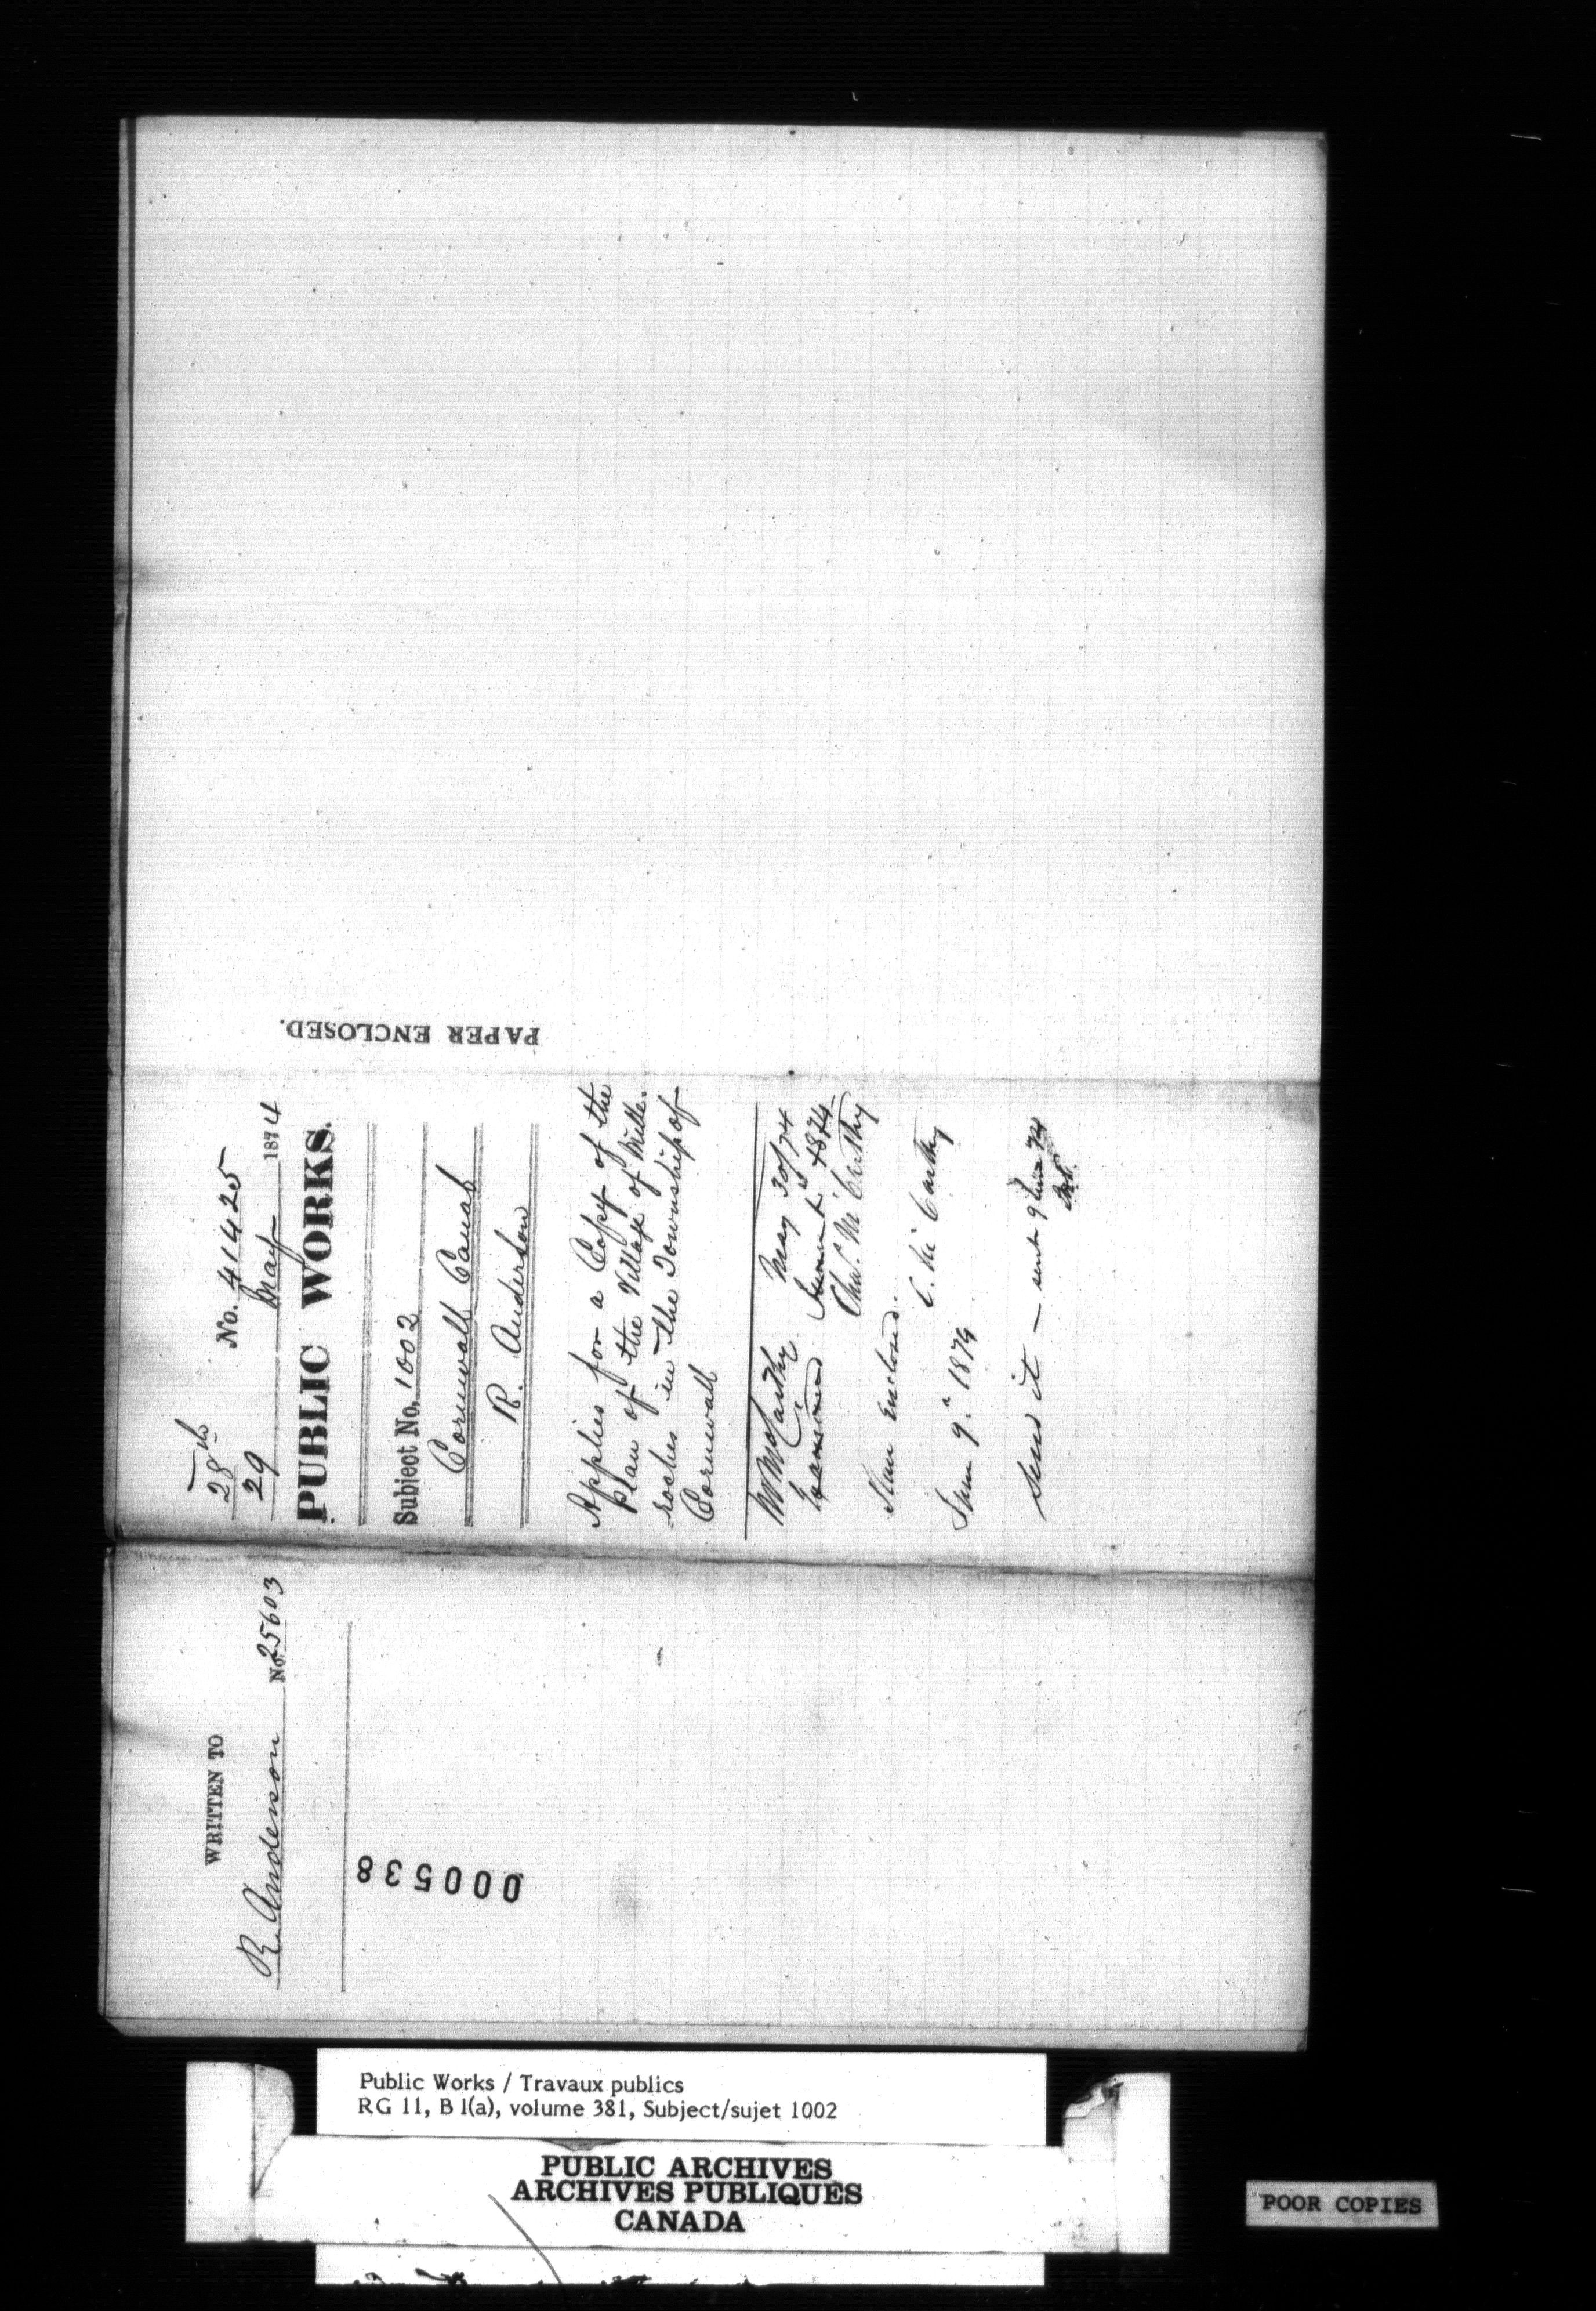 28th
No. 41425
29 May 1874
PUBLIC WORKS.
Subject No. 1002
Cornwall Canal
R. Anderson
Applies for a Copy of the
plan of the Village of Mille-
roches in the Township of
Cornwall
Mr McCarthy May 30/74
1874
Chs. McCarthy
Plan Enclosed.
C. McCarthy
June 9. 1874
Send it — sent 9 June 74
PAPER ENCLOSED.
WRITTEN TO
R. Anderson No. 25603
000538
Public Works / Travaux publics
RG 11, B 1(a), volume 381, Subject/sujet 1002
PUBLIC ARCHIVES
ARCHIVES PUBLIQUES
CANADA
POOR COPIES